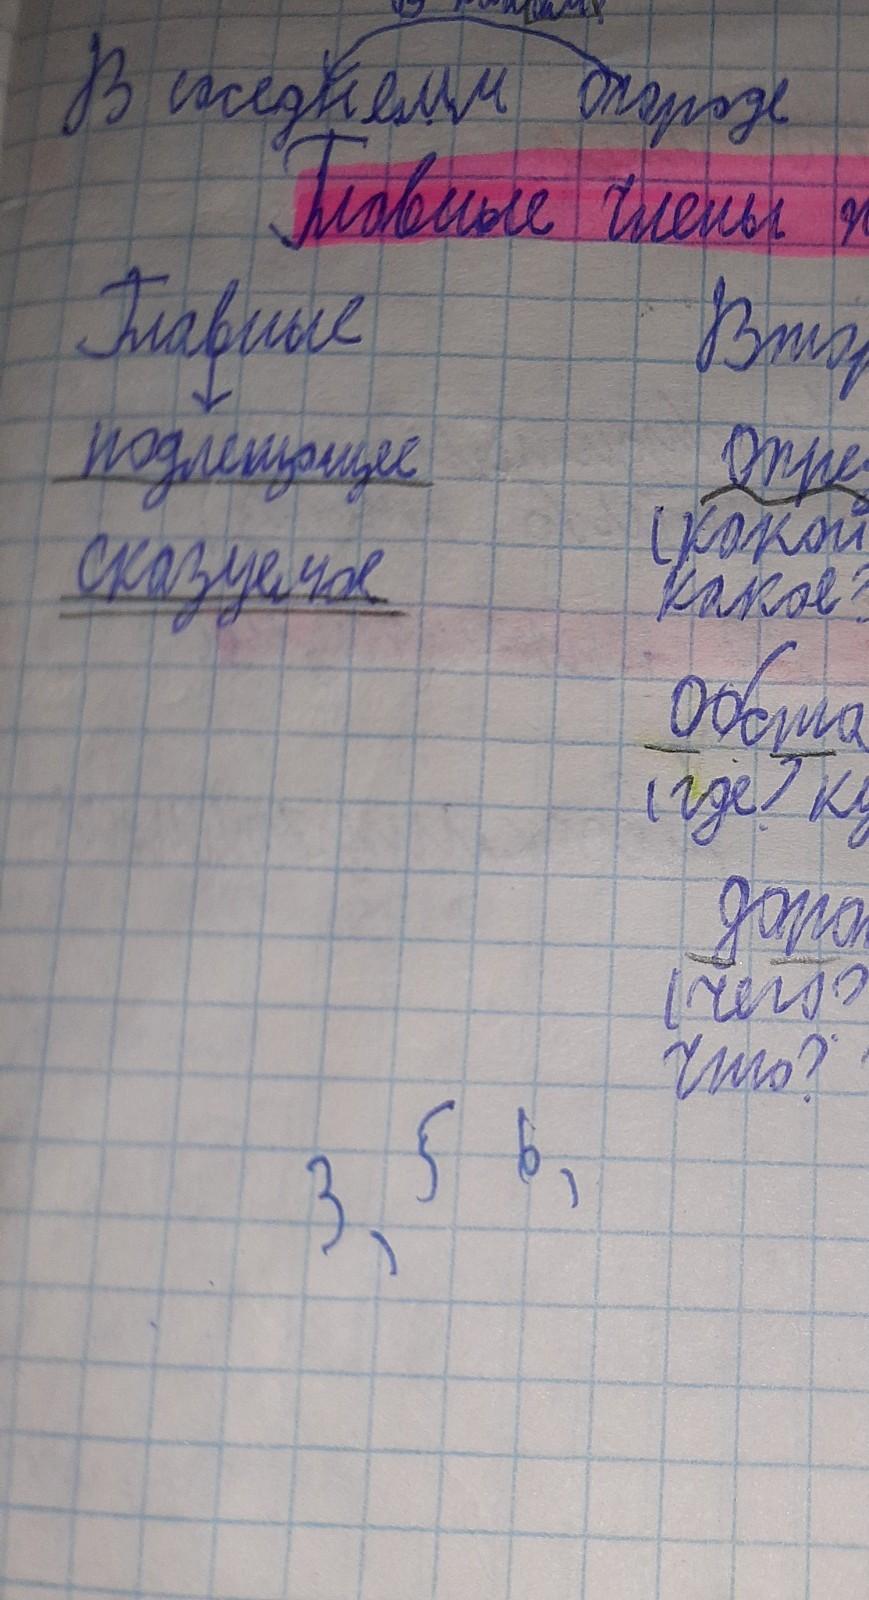 В соседнем огороде
Главные члены
Главные
подлежащее
сказуемое
Втор
Опре
(какой
какое?
Обста
(где? ку
допол
(чего?
что?
3, 5 6,